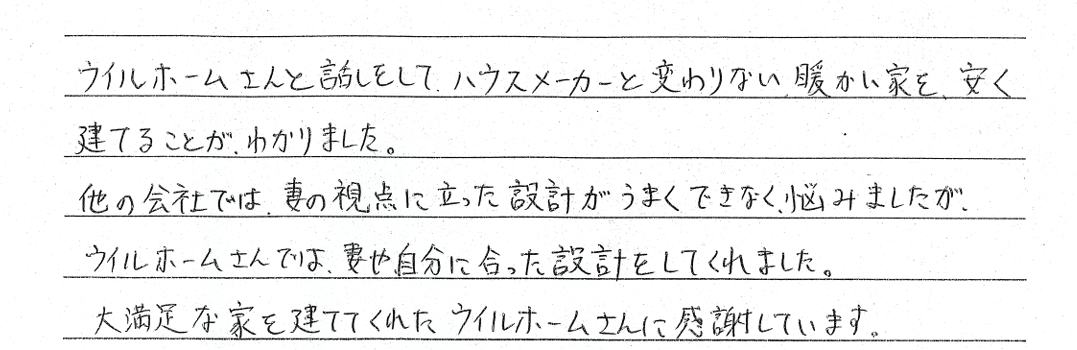 ウイルホームさんと話しをして、ハウスメーカーと変わりない、暖かい家を、安く
建てることが、わかりました。
他の会社では、妻の視点に立った設計がうまくできなく、悩みましたが、
ウイルホームさんでは、妻や自分に合った設計をしてくれました。
大満足な家を建ててくれたウイルホームさんに感謝しています。